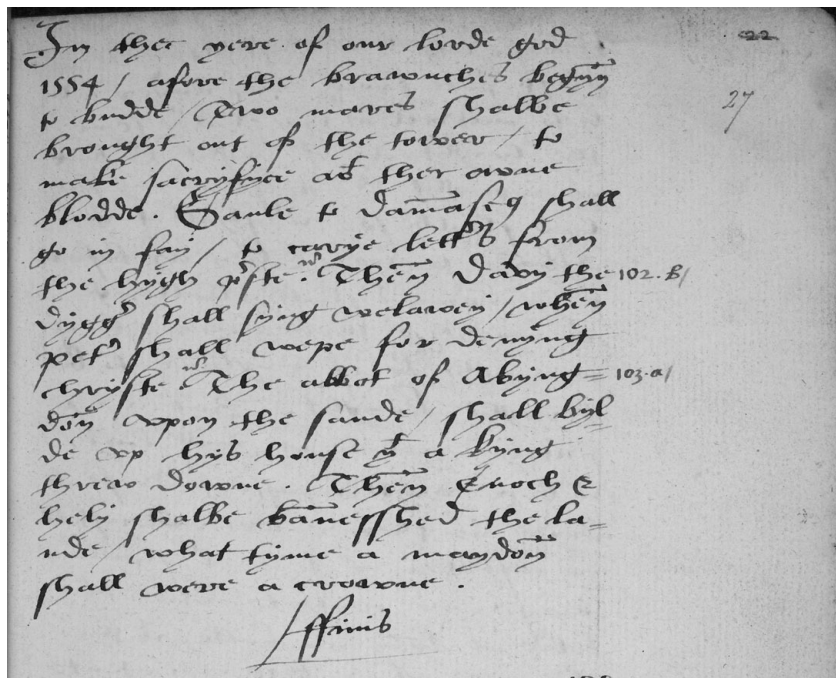 In thee yere of our lorde god
22
1554 / afore the brawnches begynn
27
to budde / Two mares shalbe
brought out of the tower / to
make sacryfyce as ther owne
blodde . Saule to Damaseq shall
go in fay / to carye letters from
the hygh prste . Then Davy the 102.b/
dyggr shall syng welawey / when
petr shall wepe for denyng
chryste The abbot of Abyng= 103.a/
don vpon the sande / shall byl=
de vp hys house yt a kyng
threw downe . Then Enoch &
hely shalbe banesshed the la=
nde / what tyme a maydon
shall were a crowne .
ffinis